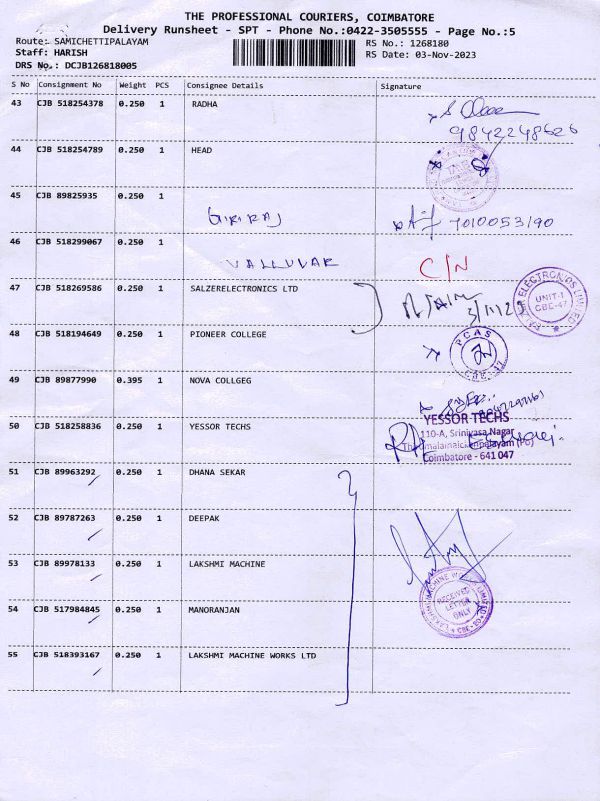 THE PROFESSIONAL COURIERS, COIMBATORE
Delivery Runsheet - SPT - Phone No.:0422-3505555 - Page No.:5
Route: SAMICHETTIPALAYAM
RS No.: 1268180
Staff: HARISH
RS Date: 03-Nov-2023
DRS No.: DCJB126818005
S No Consignment No Weight PCS Consignee Details Signature
43 CJB 518254378 0.250 1 RADHA
9842248626
44 CJB 518254789 0.250 1 HEAD
45 CJB 89825935 0.250 1
GIRIRAJ 7010053190
46 CJB 518299067 0.250 1
VALLUVAR C/N
47 CJB 518269586 0.250 1 SALZERELECTRONICS LTD
ELECTRONICS LIMITED
UNIT-1
CBE-47
48 CJB 518194649 0.250 1 PIONEER COLLEGE
PCAS
CBE-47
49 CJB 89877990 0.395 1 NOVA COLLGEG
50 CJB 518258836 0.250 1 YESSOR TECHS
YESSOR TECHS
110-A, Srinivasa Nagar
Coimbatore - 641 047
51 CJB 89963292 0.250 1 DHANA SEKAR
52 CJB 89787263 0.250 1 DEEPAK
53 CJB 89978133 0.250 1 LAKSHMI MACHINE
54 CJB 517984845 0.250 1 MANORANJAN
LAKSHMI MACHINE WORKS LIMITED
RECEIVED
LETTER
ONLY
55 CJB 518393167 0.250 1 LAKSHMI MACHINE WORKS LTD